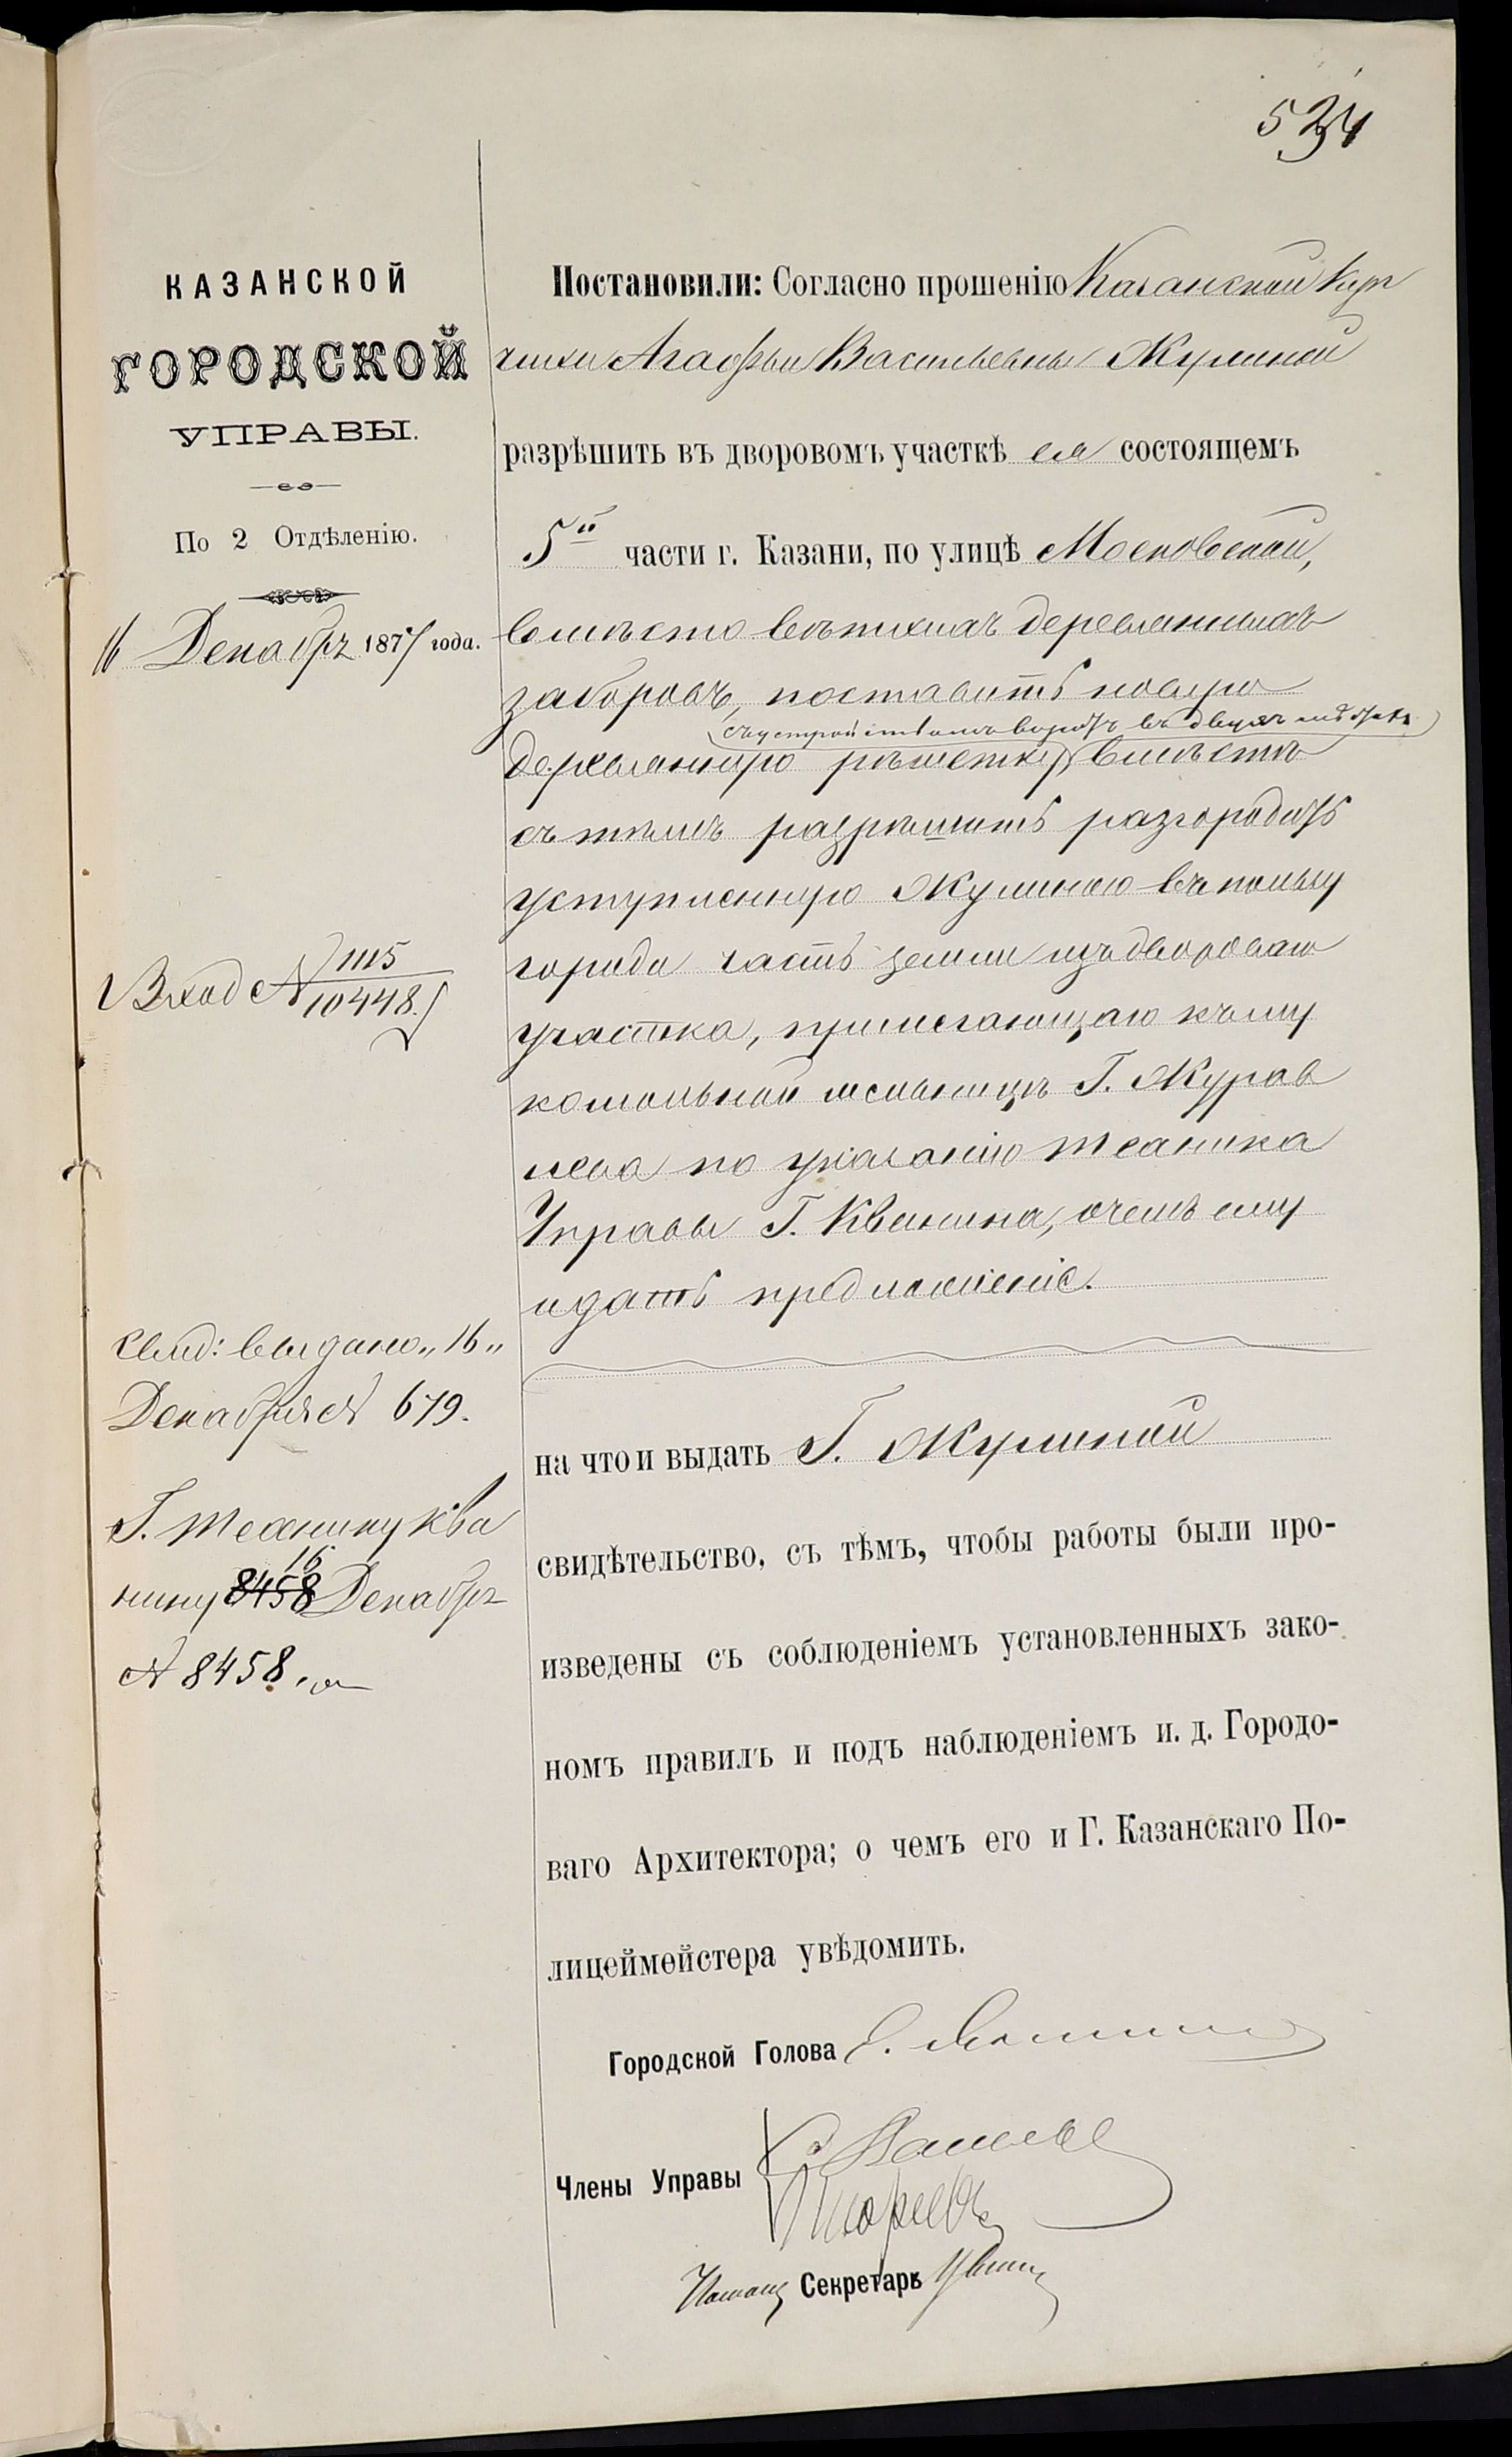 534
КАЗАНСКОЙ
ГОРОДСКОЙ
УПРАВЫ.
По 2 Отдѣленію.
16 Декабр 1877 года.
Вход № 1115
10448.
Свид: выдано „16„
Декабря № 679.
Г. Технику Ква
нину 8458 16 Декабр
№ 8458.
Постановили: Согласно прошенію Казанской Куп
чихи Агафьи Васильевны Жулиной
разрѣшить въ дворовомъ участкѣ ея состоящемъ
5й части г. Казани, по улицѣ Московской,
вмѣсто ветхихъ деревянныхъ
заборовъ, поставить новую
съ устройствомъ воротъ въ двухъ мѣстахъ
деревянную рѣшетку, вмѣстѣ
съ тѣмъ разрѣшить разгородить
уступленную Жулиною въ пользу
города часть земли изъ двороваго
участка, прилегающаго къ му
комольной мельницѣ Г. Журав
лева по указанію Техника
Управы Г. Кванина, о чемъ ему
и дать предложеніе.
на что и выдать Г. Жулиной
свидѣтельство, съ тѣмъ, чтобы работы были про-
изведены съ соблюденіемъ установленныхъ зако-
номъ правилъ и подъ наблюденіемъ и. д. Городо-
ваго Архитектора; о чемъ его и Г. Казанскаго По-
лицеймейстера увѣдомить.
Городской Голова
Члены Управы
Секретарь